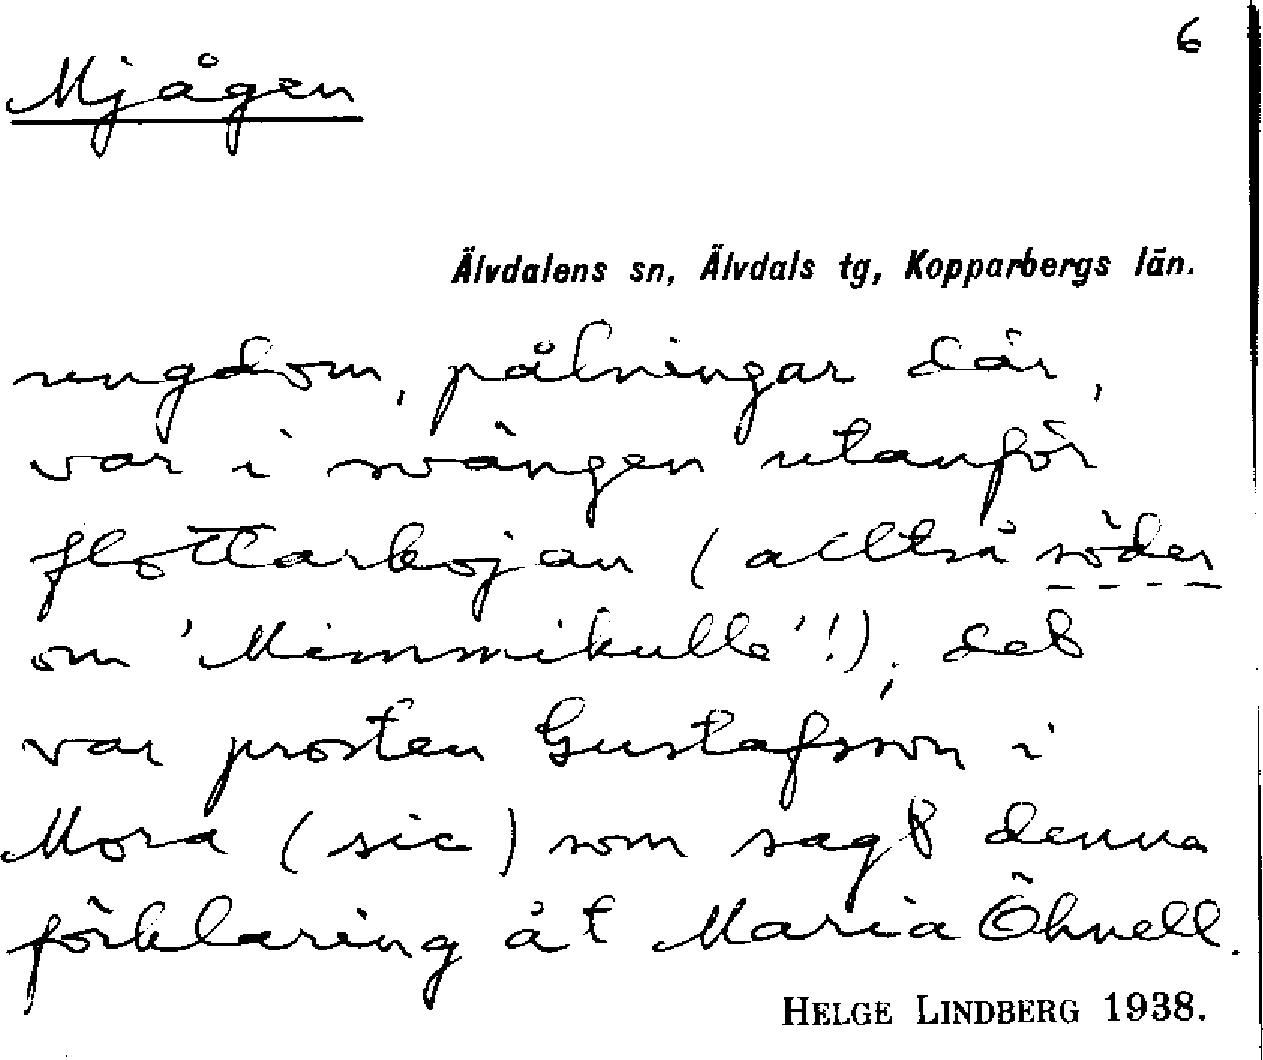 6
Mjågen
Älvdalens sn, Älvdals tg, Kopparbergs län.
ungdom, pålningar där,
var i svängen utanför
flottarkojan (alltså söder
om 'Mimmikulle'!); det
var prosten Gustafsson i
Mora (sic) som sagt denna
förklaring åt Maria Öhnell.
HELGE LINDBERG 1938.